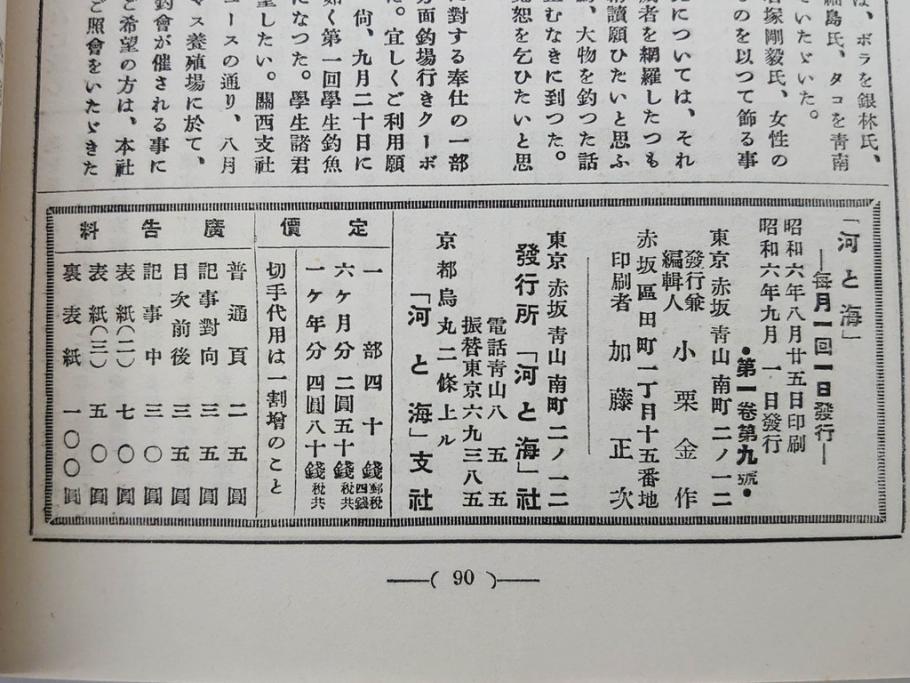 は、ボラを銀林氏、
島氏、タコを靑南
いたゞいた。
塚剛毅氏、女性の
のを以つて飾る事
については、それ
者を網羅したつも
讀願ひたいと思ふ
、大物を釣つた話
むなきに到つた。
恕を乞ひたいと思
に對する奉仕の一部
方面釣場行きクーポ
。宜しくご利用願
尙、九月二十日に
如く第一回學生釣魚
になつた。學生諸君
望したい。關西支社
ュースの通り、八月
マス養殖場に於て、
釣會が催される事に
ご希望の方は、本社
ご照會をいたゞきた
「河と海」
―每月一回一日發行―
昭和六年八月廿五日印刷
昭和六年九月一日發行
●第一卷第九號●
東京赤坂靑山南町二ノ一二
發行兼
編輯人 小栗金作
赤坂區田町一丁目十五番地
印刷者 加藤正次
東京赤坂靑山南町二ノ一二
發行所「河と海」社
電話靑山八五五
振替東京六九三八五
京都烏丸二條上ル
「河と海」支社
定價
一部 四十錢 郵税四錢
六ヶ月分 二圓五十錢 税共
一ヶ年分 四圓八十錢 税共
切手代用は一割增のこと
廣告料
普通頁 二五圓
記事對向 三五圓
目次前後 三五圓
記事中 三〇圓
表紙(二) 七〇圓
表紙(三) 五〇圓
裏表紙 一〇〇圓
( 90 )